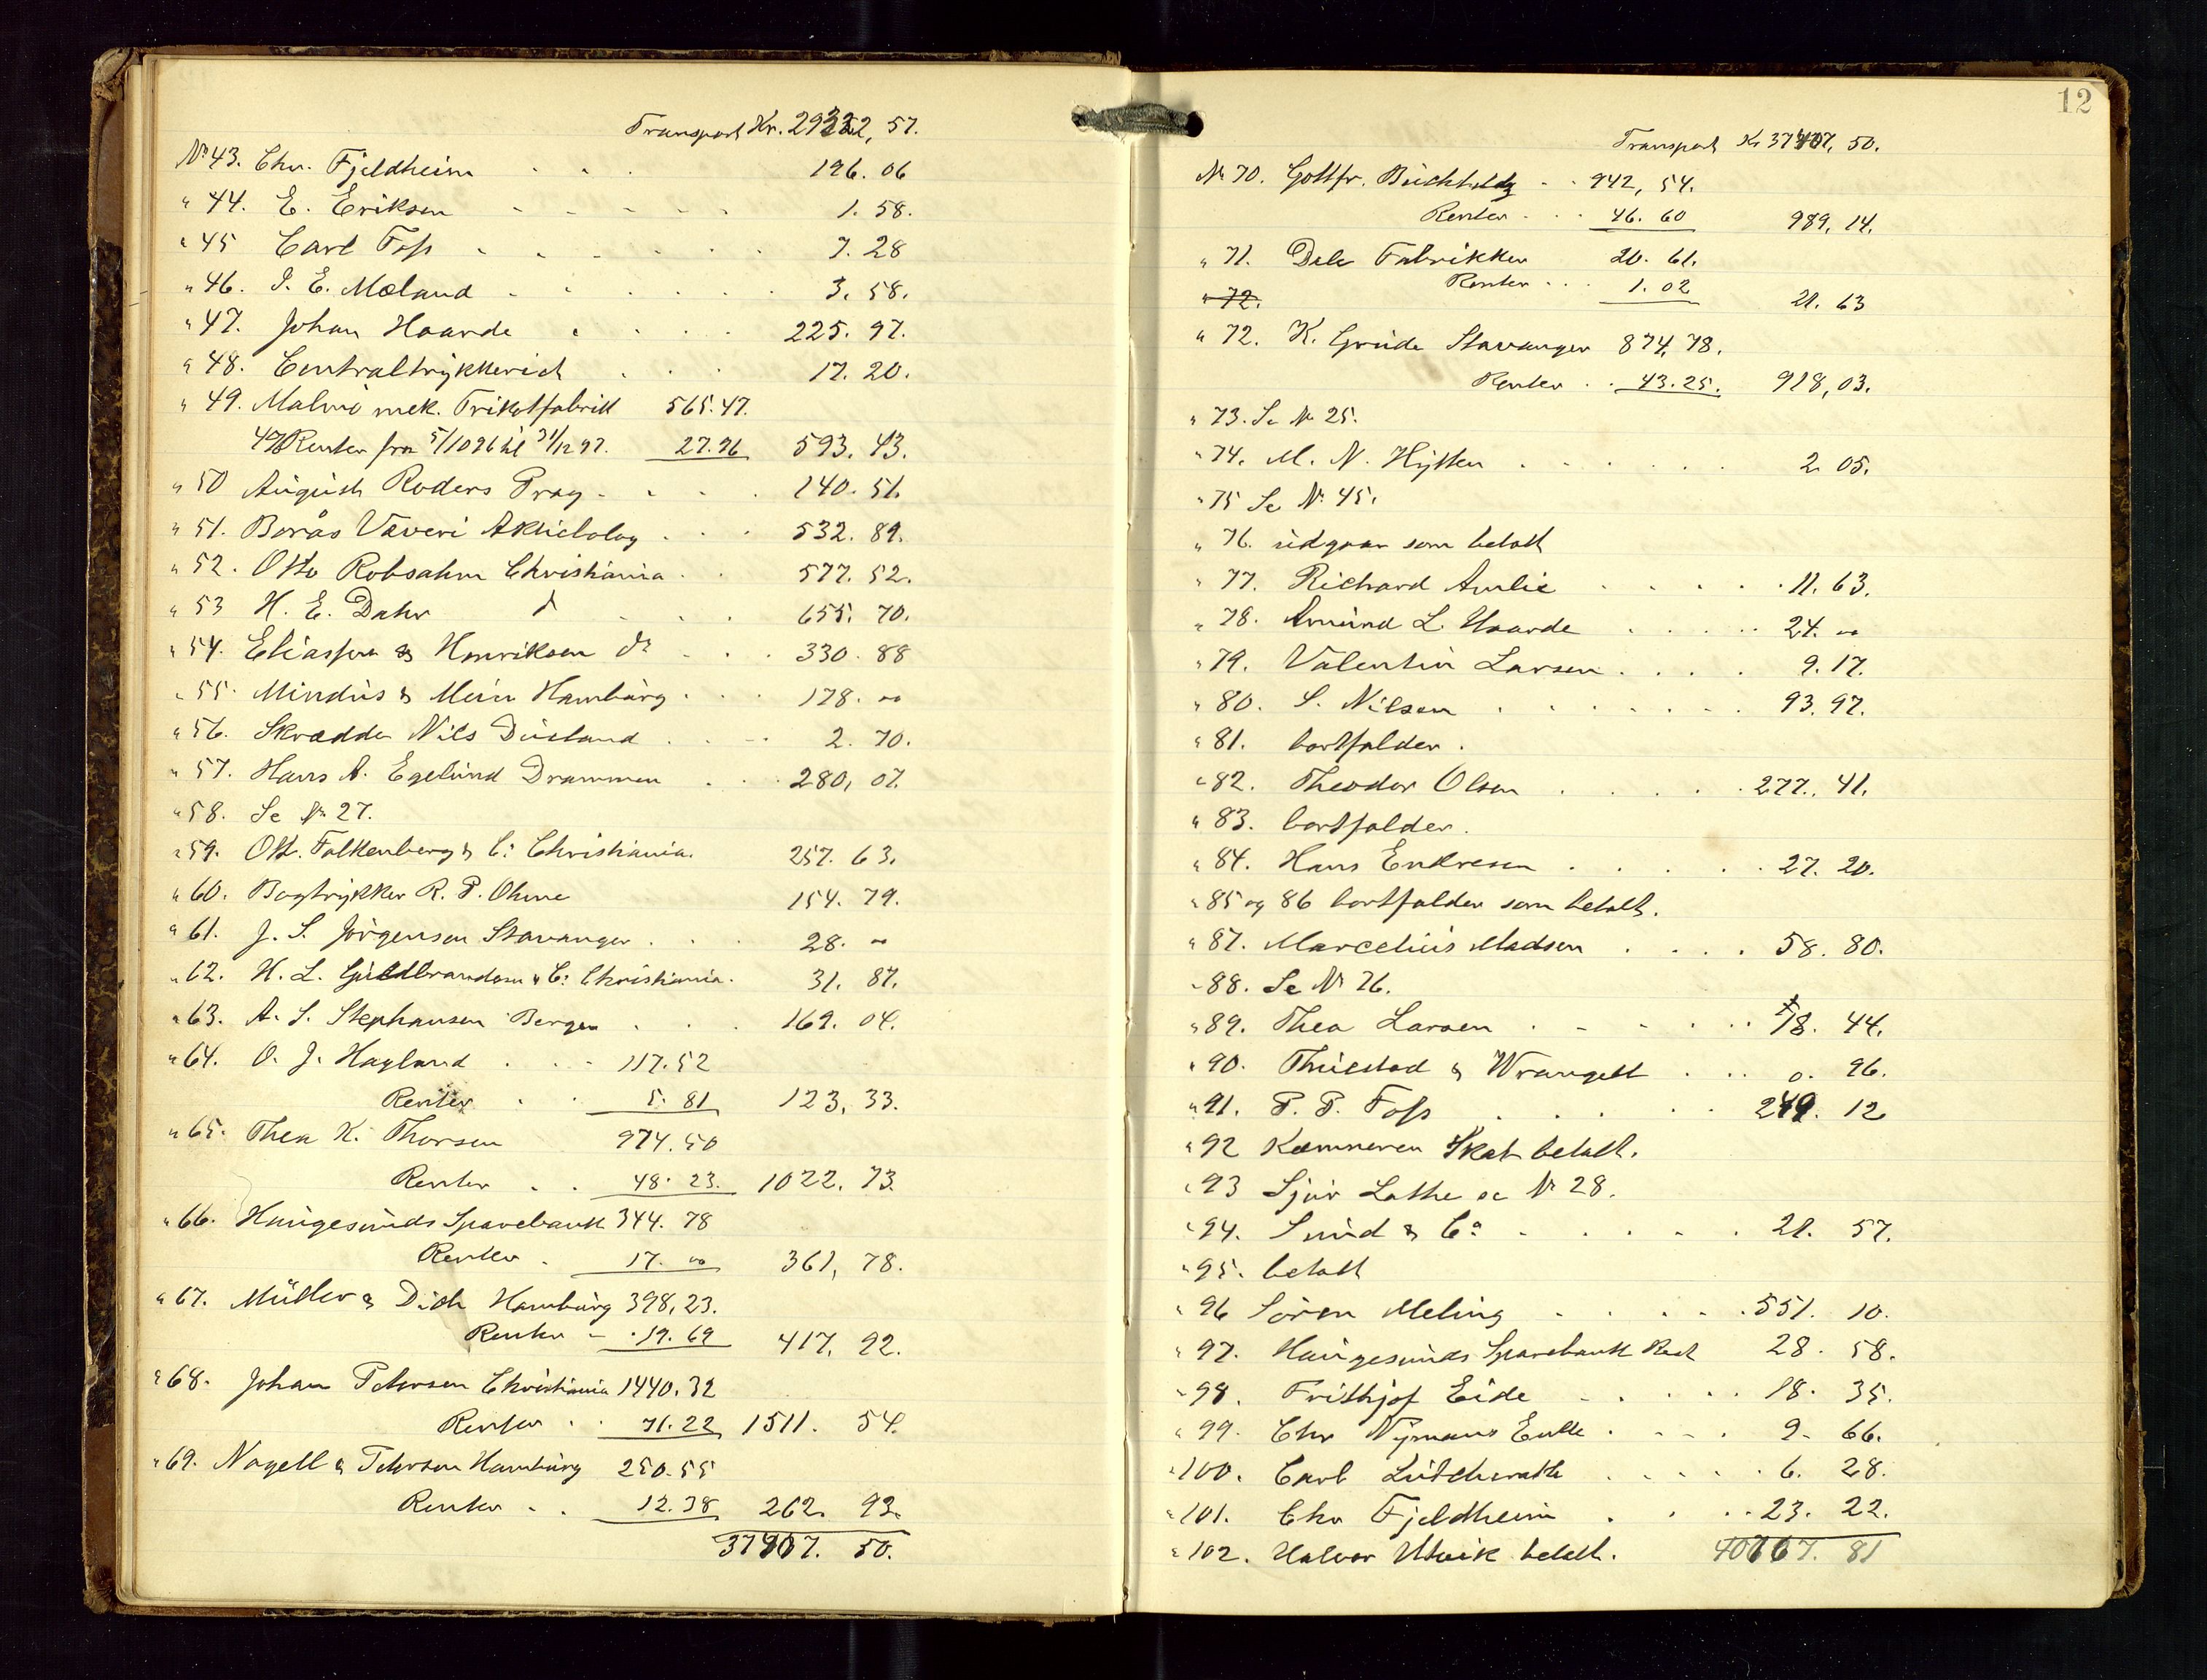 Transport Kr. 29322, 57.
No 43. Chr. Fjeldheim . . . 196. 06
" 44. E. Eriksen - - - - 1. 58.
" 45 Carl Foss . . . . 7. 28
" 46. I. E. Mæland . . . . 3. 58.
" 47. Johan Haarde . . . . 225. 97.
" 48. Centraltrykkeriet . . . 17. 20.
" 49. Malmö mek. Trikotfabrik 565.47.
4% Renter fra 5/10 96 til 31/12 97. 27.96 593. 43.
" 50 August Roders Prag . . . 140. 51.
" 51. Borås Väveri Aktiebolag . . . 532. 89.
" 52. Otto Robsahm Christiania . . 577. 52.
" 53 H. E. Dahr do . . . 655. 70.
" 54. Eliassen & Henriksen do . . . 330. 88
" 55. Mindus & Mein Hamburg . . . 178. "
" 56. Skrædder Nils Duesland . . . 2. 70.
" 57. Hans A. Egelund Drammen . . 280, 07.
" 58. Se No 27.
" 59. Ott. Falkenberg & Co Christiania. 257. 63.
" 60. Bogtrykker R. P. Ohme 154. 79.
" 61. J. S. Jörgensen Stavanger . . . 28. "
" 62. H. L. Guldbrandsen & Co Christiania. 31. 87.
" 63. A. S. Stephansen Bergen . . . 169. 04.
" 64. O. J. Hagland . . . 117.52
Renter . . 5. 81 123, 33.
" 65. Thea K. Thorsen 974.50
Renter . . 48. 23. 1022. 73.
" 66. Haugesunds Sparebank 344. 78
Renter . 17. " 361, 78.
" 67. Müller & Dich Hamburg 398, 23.
Renter - . 19. 69 417, 92.
" 68. Johan Petersen Christiania 1440. 32
Renter . . 71. 22 1511. 54.
" 69. Nagell & Petersen Hamburg 250. 55
Renter . . 12.38 262. 93.
37907. 50.
12
Transport Kr 37907, 50.
No 70. Gottfr. Buchholdz . . 942, 54.
Renter . . . 46. 60 989, 14.
" 71. Dale Fabrikker 20. 61.
Renter . . . 1. 02 21. 63
" 72.
" 72. K. Grude Stavanger 874, 78.
Renter . . 43. 25. 918, 03.
" 73. Se No 25.
" 74. M. N. Hytten . . . . . 2. 05.
" 75 Se No 45.
" 76. udgaar som betalt
" 77. Richard Amlie . . . . . 11. 63.
" 78. Amund L. Haarde . . . . 24. "
" 79. Valentin Larsen . . . . 9. 17.
" 80. S. Nilsen . . . . . . 93. 97.
" 81. bortfalder .
" 82. Theodor Olsen . . . . . 277. 41.
" 83. bortfalder.
" 84. Hans Endresen . . . . 27. 20.
" 85 og 86 bortfalder som betalt.
" 87. Marcelius Madsen . . . . 58. 80.
" 88. Se No 26.
" 89. Thea Larsen . . . . . 18. 44.
" 90. Thuestad & Wrangell . . . 0. 96.
" 91. P. P. Foss . . . . . 249. 12
" 92 Kæmneren Skat betalt.
" 93 Sjur Lothe se No 28.
" 94. Sund & Co . . . . . 21. 57.
" 95. betalt
" 96 Sören Meling . . . . . 551. 10.
" 97. Haugesunds Sparebank Rest 28. 58.
" 98. Frithjof Eide . . . . . 18. 35.
" 99. Chr Nymans Enke . . . . 9. 66.
" 100. Carl Lütcherath . . . . . 6. 28.
" 101. Chr Fjeldheim . . . . 23. 22.
" 102. Halvor Utvik betalt. 40767. 81